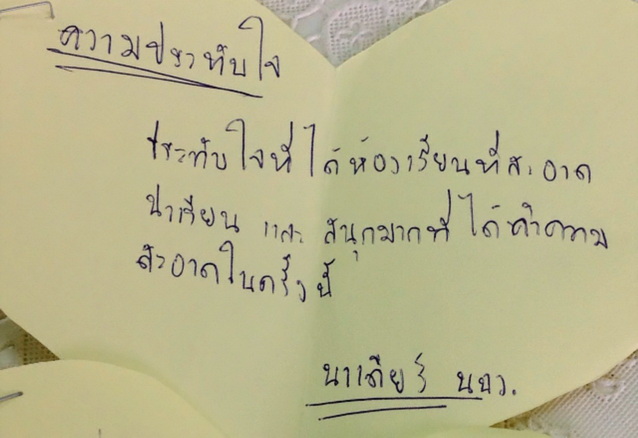 ความประทับใจ
ประทับใจที่ได้ห้องเรียนที่สะอาด
น่าเรียน และ สนุกมากที่ได้ทำความ
สะอาดในครั้งนี้
นาเดียร์